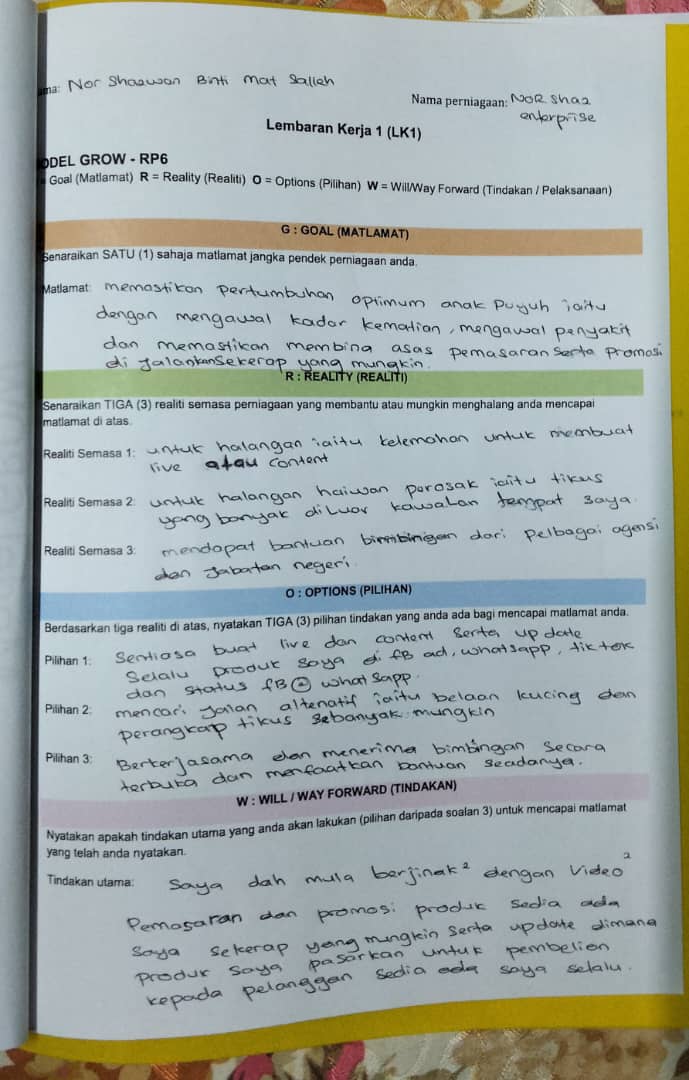 ama: Nor Shazwan Binti Mat Salleh
Nama perniagaan: NOR Shaz
enterprise
Lembaran Kerja 1 (LK1)
ODEL GROW - RP6
= Goal (Matlamat) R = Reality (Realiti) O = Options (Pilihan) W = Will/Way Forward (Tindakan / Pelaksanaan)
G : GOAL (MATLAMAT)
Senaraikan SATU (1) sahaja matlamat jangka pendek perniagaan anda.
Matlamat: memastikan pertumbuhan optimum anak puyuh iaitu
dengan mengawal kadar kematian, mengawal penyakit
dan memastikan membina asas pemasaran serta promosi
di jalankan sekerap yang mungkin.
R : REALITY (REALITI)
Senaraikan TIGA (3) realiti semasa perniagaan yang membantu atau mungkin menghalang anda mencapai
matlamat di atas.
Realiti Semasa 1: untuk halangan iaitu kelemahan untuk membuat
live atau content
Realiti Semasa 2: untuk halangan haiwan perosak iaitu tikus
yang banyak diluar kawalan tempat saya.
Realiti Semasa 3: mendapat bantuan bimbingan dari pelbagai agensi
dan jabatan negeri.
O : OPTIONS (PILIHAN)
Berdasarkan tiga realiti di atas, nyatakan TIGA (3) pilihan tindakan yang anda ada bagi mencapai matlamat anda.
Pilihan 1: Sentiasa buat live dan content serta update
Selalu produk saya di fb ad, whatsapp, tiktok
dan status fB whatsapp.
Pilihan 2: mencari jalan altenatif iaitu belaan kucing dan
perangkap tikus sebanyak mungkin
Pilihan 3: Berkerjasama dan menerima bimbingan secara
terbuka dan manfaatkan bantuan seadanya.
W : WILL / WAY FORWARD (TINDAKAN)
Nyatakan apakah tindakan utama yang anda akan lakukan (pilihan daripada soalan 3) untuk mencapai matlamat
yang telah anda nyatakan.
Tindakan utama: Saya dah mula berjinak² dengan video²
Pemasaran dan promosi produk sedia ada
Saya sekerap yang mungkin serta update dimana
produk saya pasarkan untuk pembelian
kepada pelanggan sedia ada saya selalu.